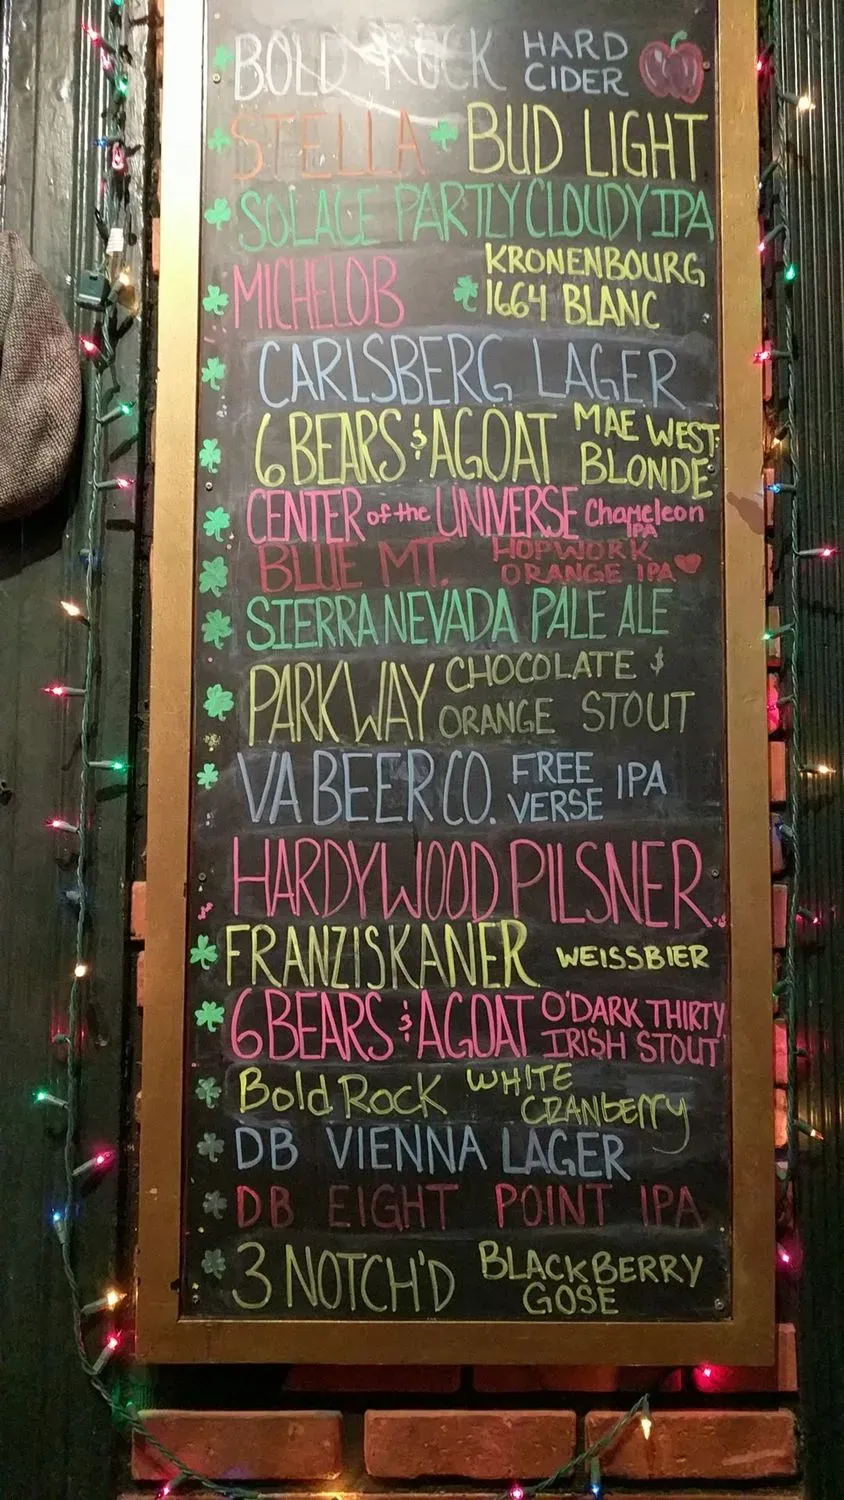 BOLD ROCK HARD CIDER
STELLA BUD LIGHT
SOLACE PARTLY CLOUDY IPA
MICHELOB KRONENBOURG 1664 BLANC
CARLSBERG LAGER
6 BEARS & A GOAT MAE WEST BLONDE
CENTER of the UNIVERSE Chameleon IPA
BLUE MT. HOPWORK ORANGE IPA
SIERRA NEVADA PALE ALE
PARKWAY CHOCOLATE & ORANGE STOUT
VA BEER CO. FREE VERSE IPA
HARDYWOOD PILSNER
FRANZISKANER WEISSBIER
6 BEARS & A GOAT O'DARK THIRTY IRISH STOUT
Bold Rock WHITE CRANBERRY
DB VIENNA LAGER
DB EIGHT POINT IPA
3 NOTCH'D BLACKBERRY GOSE